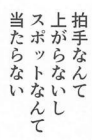 拍手なんて
上がらないし
スポットなんて
当たらない